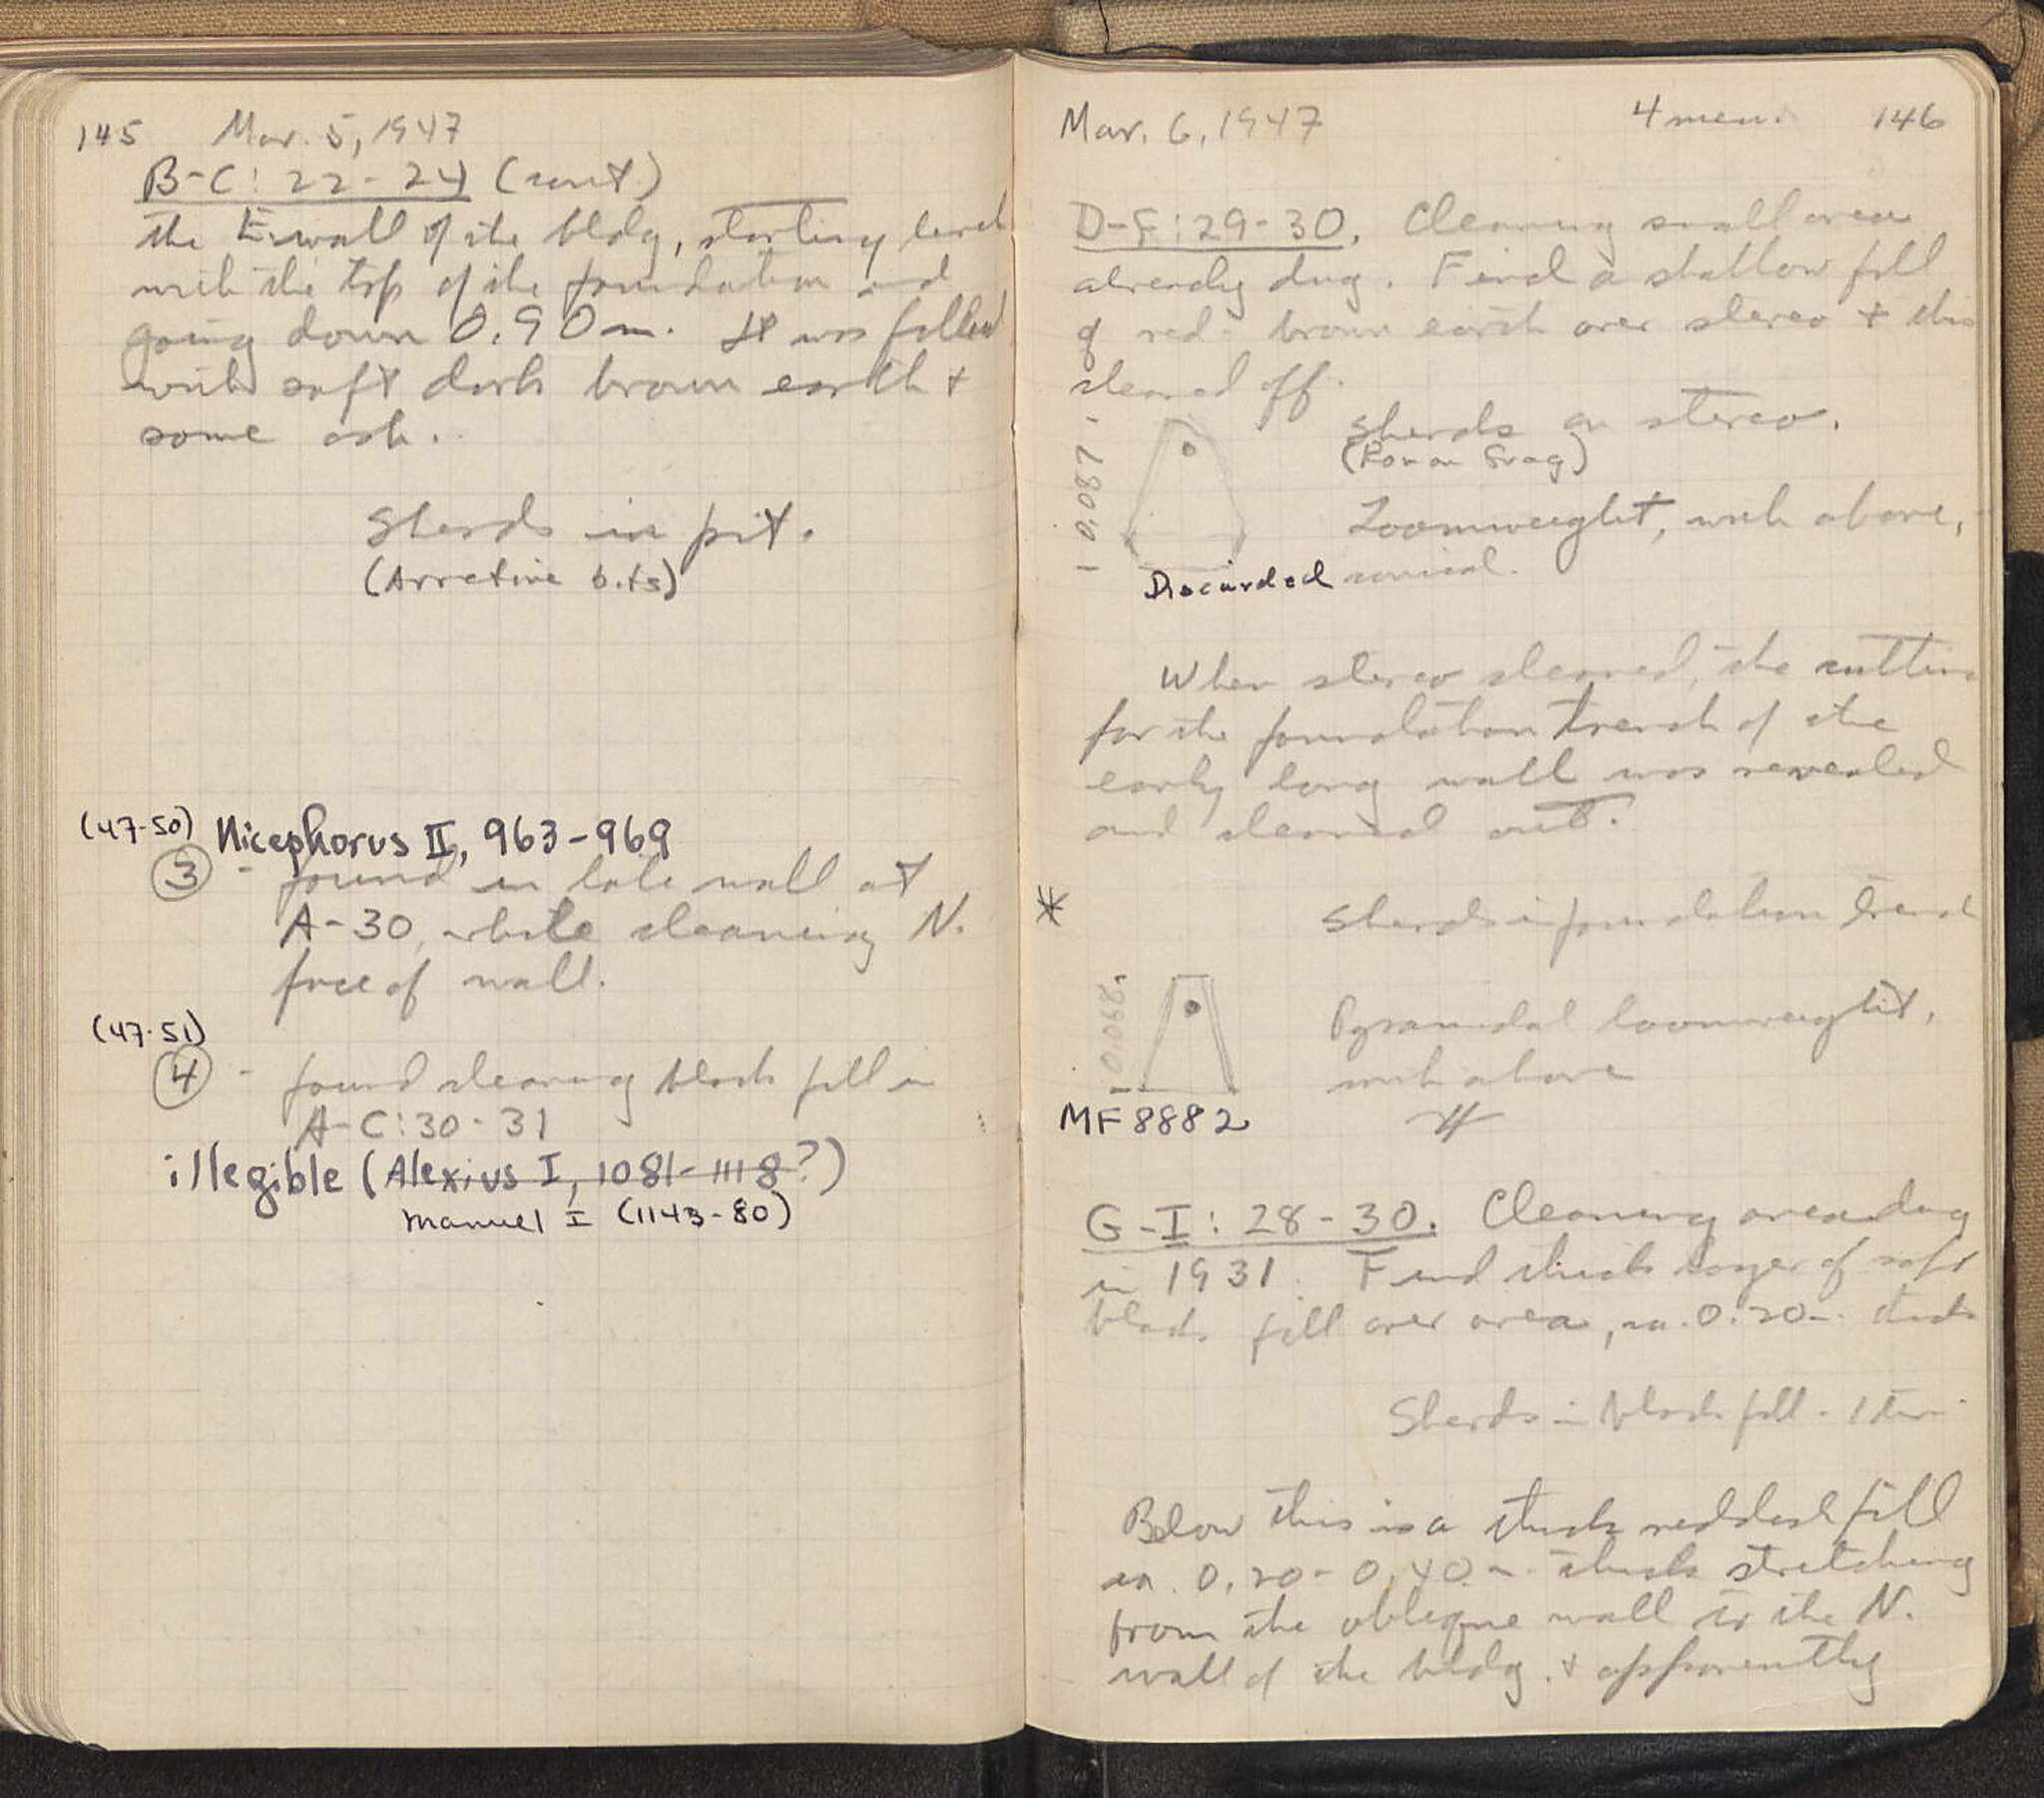 145 Mar. 5, 1947
B-C: 22-24 (cont)
the E. wall of the bldg, starting level
with the top of the foundation and
going down 0.90 m. It was filled
with soft dark brown earth +
some ash.
Sherds in pit.
(Arretine bits)
(47-50) Nicephorus II, 963-969
③ - found in late wall at
A-30, while cleaning N.
face of wall.
(47-51)
④ - found cleaning black fill in
A-C: 30-31
illegible (Alexius I, 1081-1118?)
Manuel I (1143-80)
Mar. 6, 1947 4 men. 146
D-F: 29-30. Cleaning small area
already dug. Find a shallow fill
of red-brown earth over stereo + this
cleared off.
Sherds on stereo.
(Roman Frag)
0.087
Loomweight, with above,
Discarded conical.
When stereo cleaned, the cutting
for the foundation trench of the
early long wall was revealed
and cleaned out.
* Sherds in foundation trench
0.068
Pyramidal loomweight,
with above
MF 8882
G-I: 28-30. Cleaning area dug
in 1931. Find thick layer of soft
black fill over area, ca. 0.20 m. thick
Sherds in black fill - 1 tin.
Below this is a thick reddish fill
ca. 0.20-0.40 m. thick stretching
from the oblique wall to the N.
wall of the bldg. + apparently